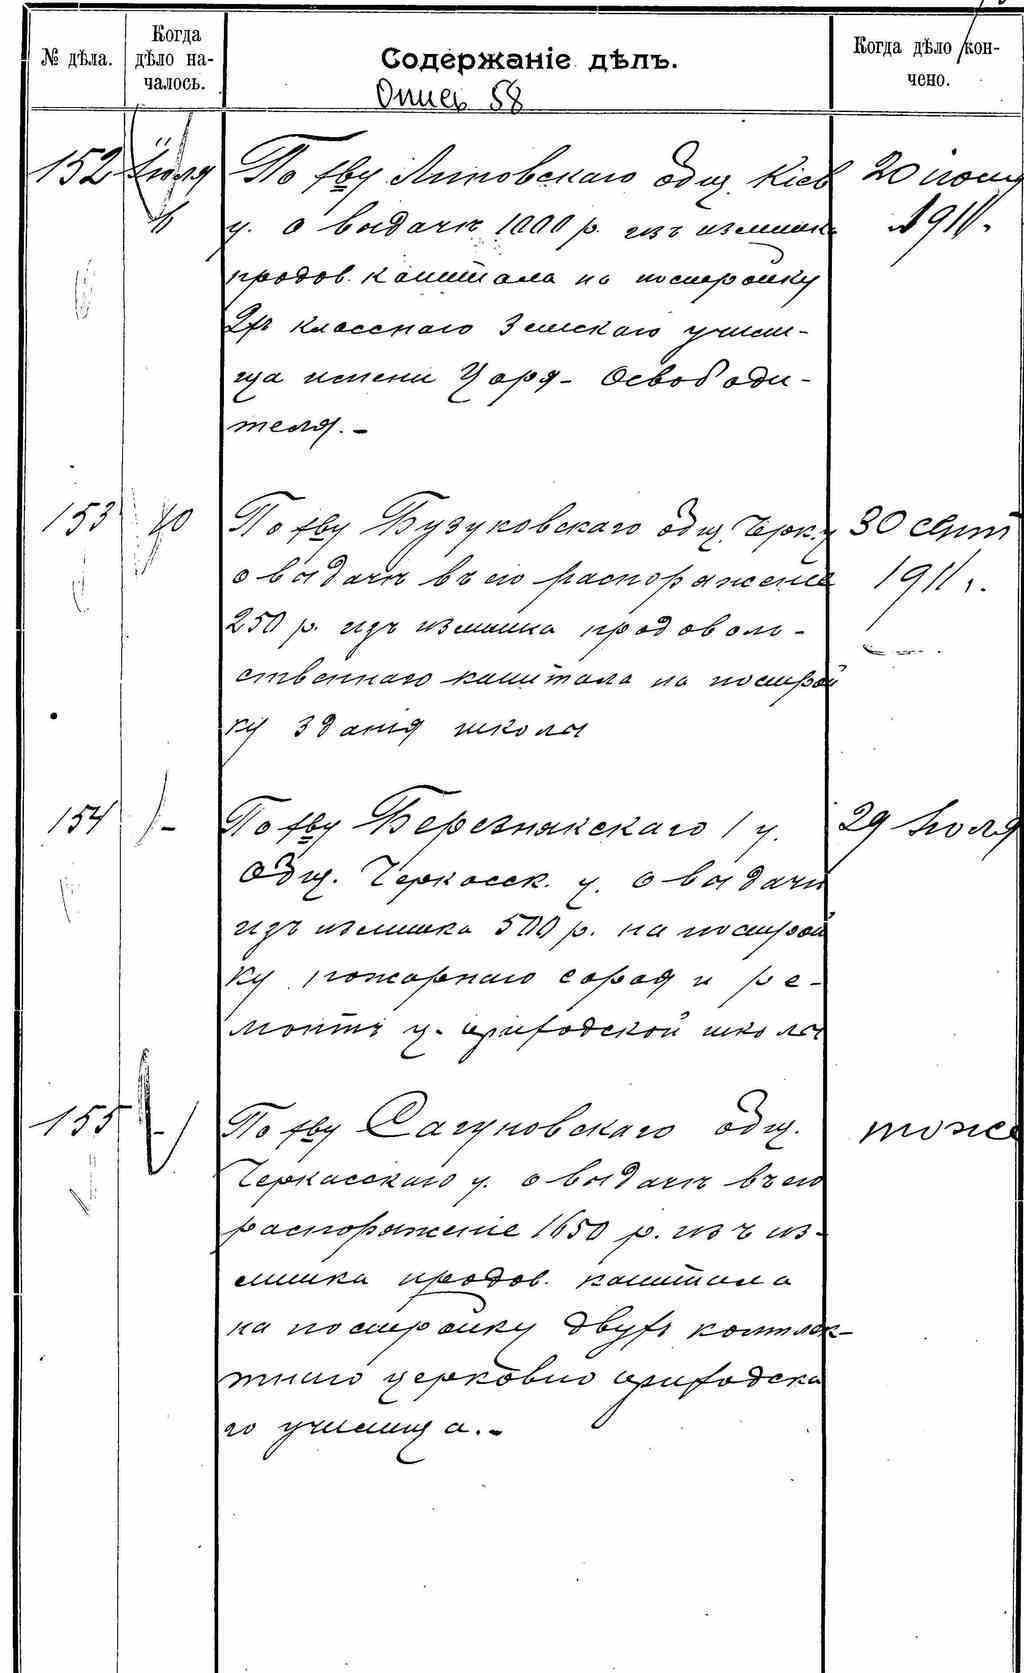 № дѣла.
Когда дѣло началось.
Содержаніе дѣлъ.
Когда дѣло кончено.
Опись 58
152 Іюля По хву Липовскаго общ. Кіев 20 іюня
у. о выдачѣ 1000 р. изъ излишка 1911.
продов. капитала на постройку
2хъ класснаго Земскаго учили-
ща имени Царя-Освободи-
теля.-
153 10 По хву Бузуковскаго общ. Черк. у 30 сент
о выдачѣ въ его распоряженіе 1911 г.
250 р. изъ излишка продоволь-
ственнаго капитала на построй
ку зданія школы
154 - По хву Березнякскаго 1 у. 29 Іюля
общ. Черкасск. у. о выдачи
изъ излишка 500 р. на построй
ку пожарнаго сарая и ре-
монтъ ц. приходской школы
155 - По хву Сагуновскаго общ. тоже
Черкасскаго у. о выдачѣ въ его
распоряженіе 1650 р. изъ из-
лишка продов. капитала
на постройку двухъ комплек-
тнаго церковно приходска
го училища.-